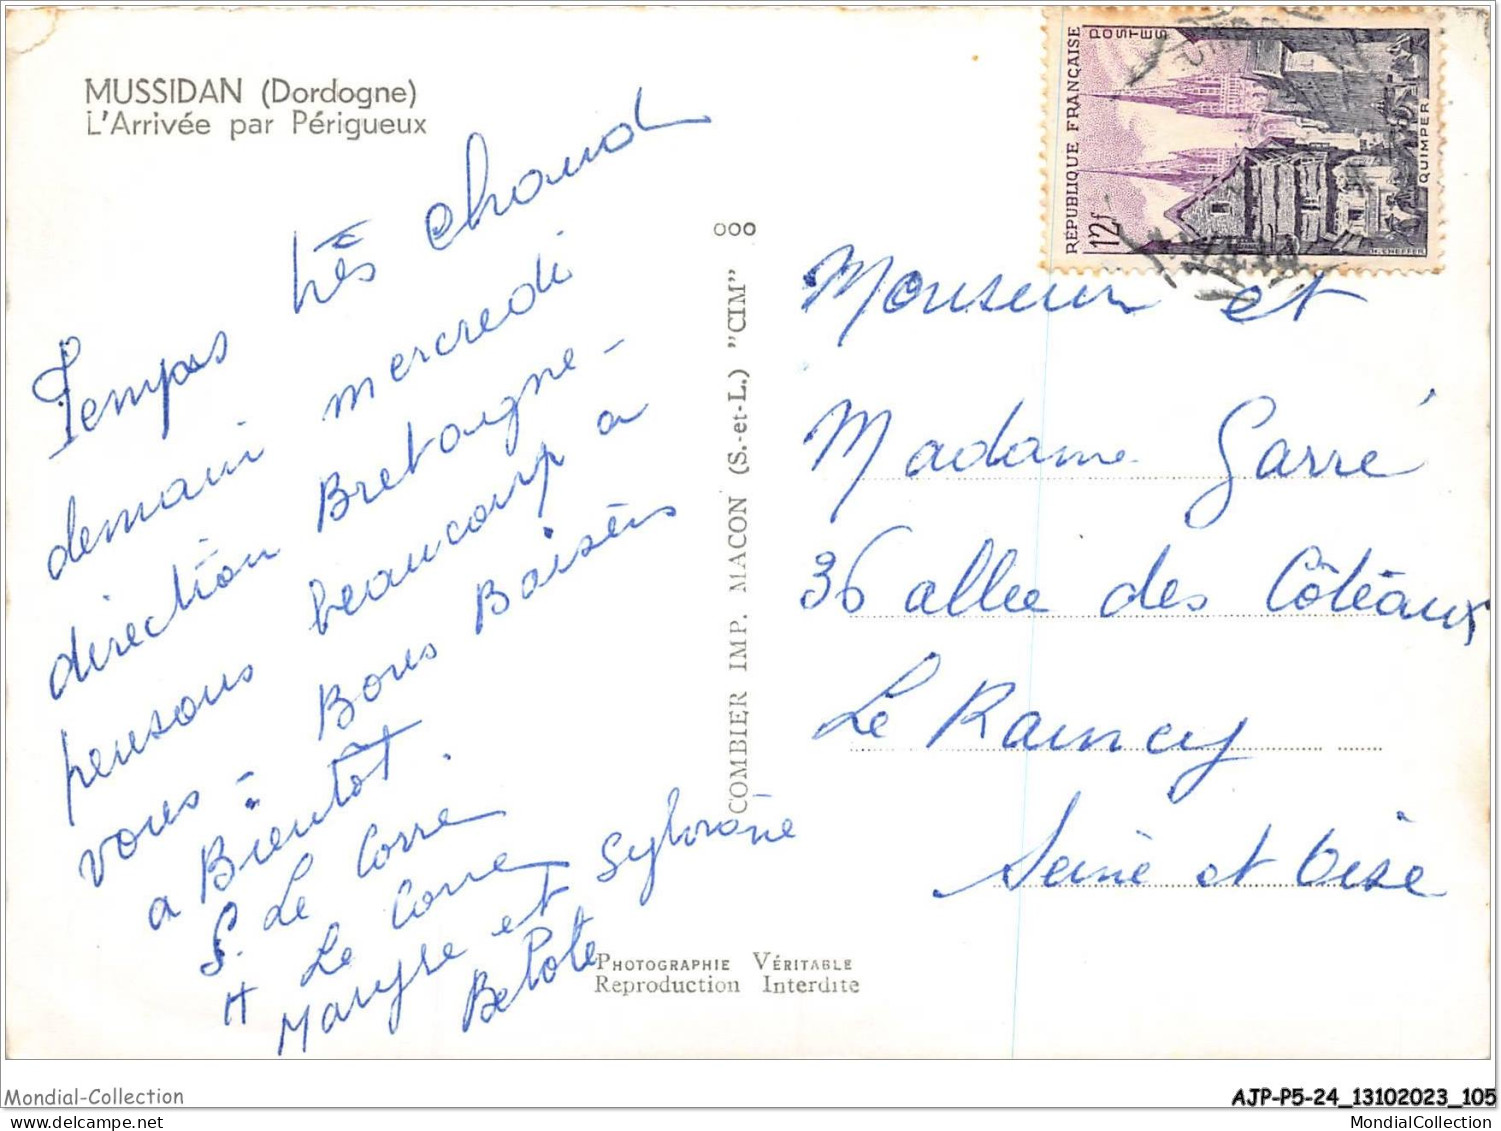 MUSSIDAN (Dordogne)
L'Arrivée par Périgueux
Temps très chaud
demain mercredi
direction Bretagne -
pensons beaucoup a
vous - Bons Baisers
a Bientôt.
S. Le Corre
H Le Corre
Maryse et Sylviane
Belote
COMBIER IMP. MACON (S.-et-L.) "CIM"
PHOTOGRAPHIE VÉRITABLE
Reproduction Interdite
RÉPUBLIQUE FRANÇAISE
POSTES
12f
QUIMPER
Monsieur et
Madame Garré
36 allee des Côteaux
Le Raincy
Seine et Oise
Mondial-Collection
mondial-collection.fr
AJP-P5-24_13102023_105
MondialCollection